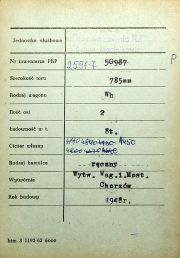 Jednostka służbowa
Nr inwentarza PKP 50987
2591-7
P
Szerokość toru 785mm
Rodzaj wagonu Wh
Ilość osi 2
Ładowność w t. 8t.
Ciężar własny 4450
Rodzaj hamulca ręczny
Wytwórnia Wytw. Wag.i.Most.
Chorzów
Rok budowy 1948r.